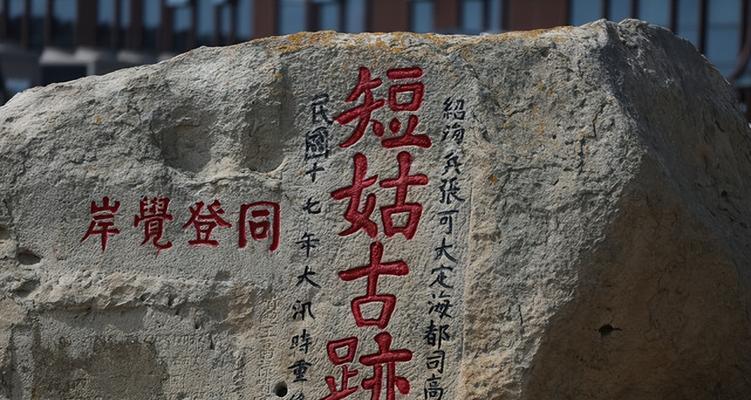 紹海兵張可大定海都司高
短姑古跡
民國十七年大汛時重
同登覺岸